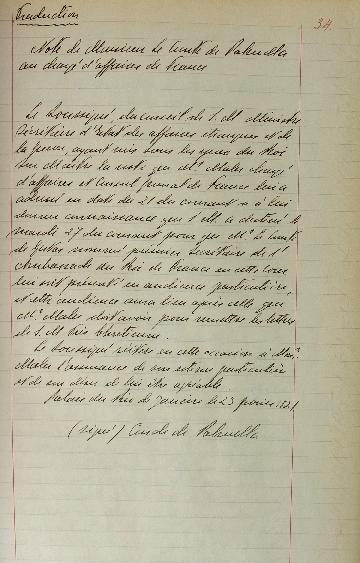 Traduction
34.
Note de Monsieur le Comte de Palmella
au chargé d'affaires de France
Le Soussigné, du conseil de S. M. Ministre
Secrétaire d'état des affaires étrangères et de
la guerre, ayant mis sous les yeux du Roi
Son Maître la note que Mr. Maler chargé
d'affaires et Consul général de France lui a
adressé en date du 21 du courant a à lui
donner connaissance que S. M. a destiné le
mardi 27 du courant pour que Mr. le Comte
de nommé premier Secrétaire de l'
Ambassade du Roi de France en cette Cour
lui soit présenté en audience particulière
et cette audience aura lieu après celle que
Mr. Maler doit avoir pour remettre les lettres
de S. M. très Chrétienne.
Le Soussigné réitère en cette occasion à Mr.
Maler l'assurance de son estime particulière
et de son désir de lui être agréable.
Palais du Rio de Janeiro le 23 février 1821
(signé) Conde de Palmella